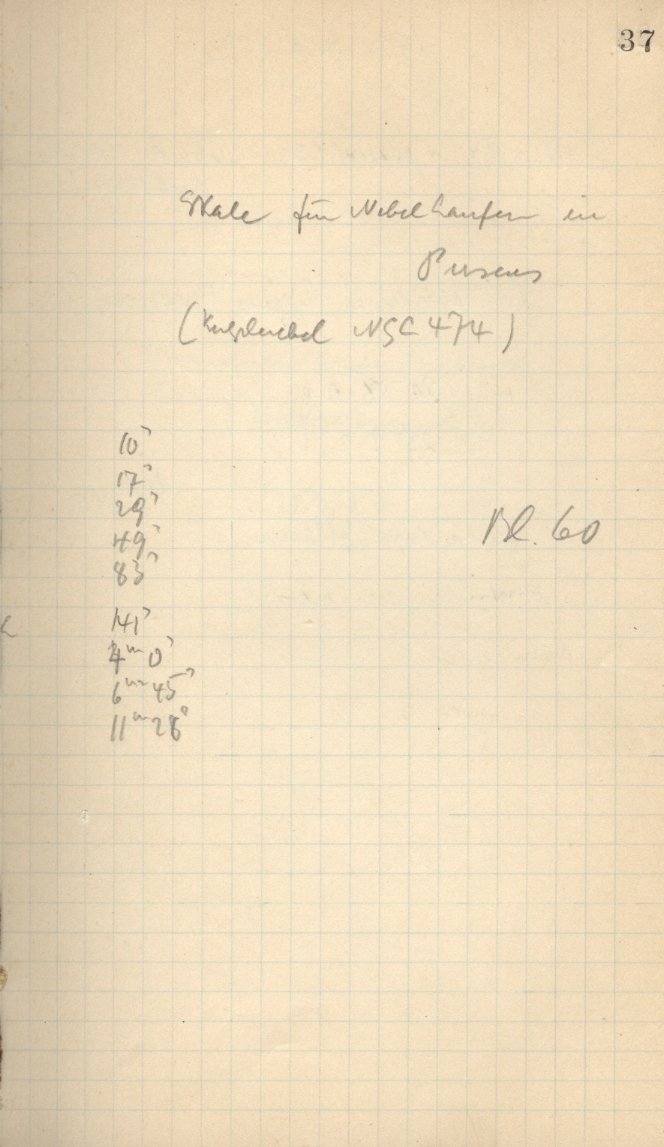 37
Skale für Nebelhaufen in
Pisces
(Kugelnebel NGC 474)
10ˢ
17ˢ
29ˢ
49ˢ
83ˢ
Bl. 60
141ˢ
4ᵐ 0ˢ
6ᵐ 45ˢ
11ᵐ 28ˢ